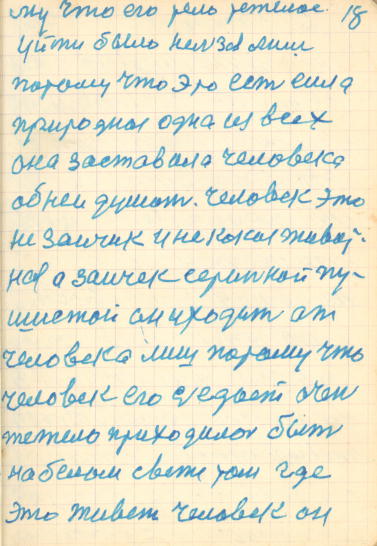 му что его тело тежелое. 18
уйти было нельзя лиш
потому что это есть сила
природная одна из всех
она заставила человека
об неи думат. человек это
не заичик и не какое живот-
ное а заичек серинкой пу-
шистой он уходит от
человека лиш потому что
человек его сьедает очен
тежело приходилос быт
на белом свете том где
это живет человек он